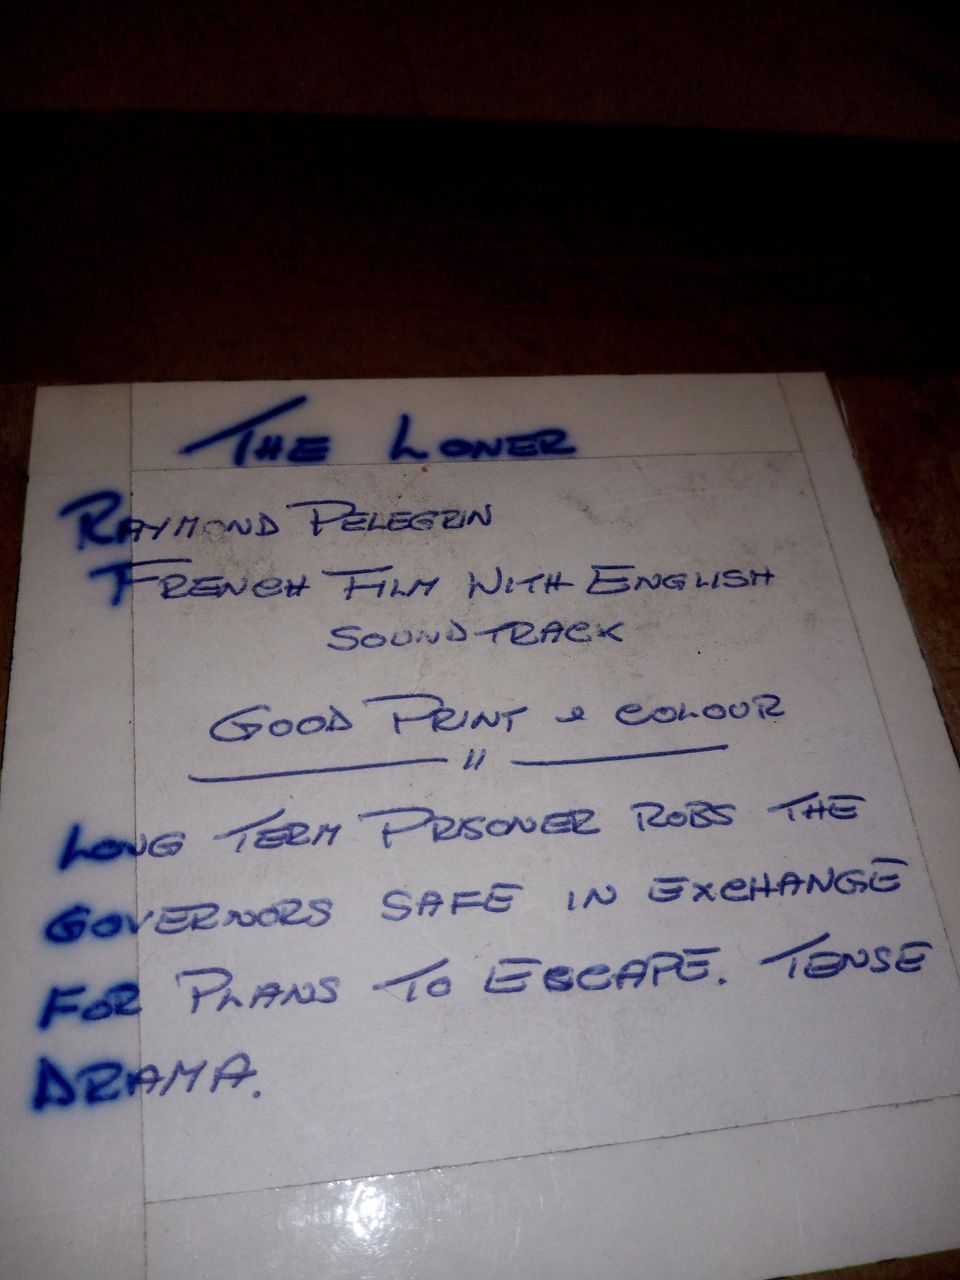 THE LONER
RAYMOND PELEGRIN
FRENCH FILM WITH ENGLISH
SOUNDTRACK
GOOD PRINT & COLOUR
"
LONG TERM PRISONER ROBS THE
GOVERNORS SAFE IN EXCHANGE
FOR PLANS TO ESCAPE. TENSE
DRAMA.